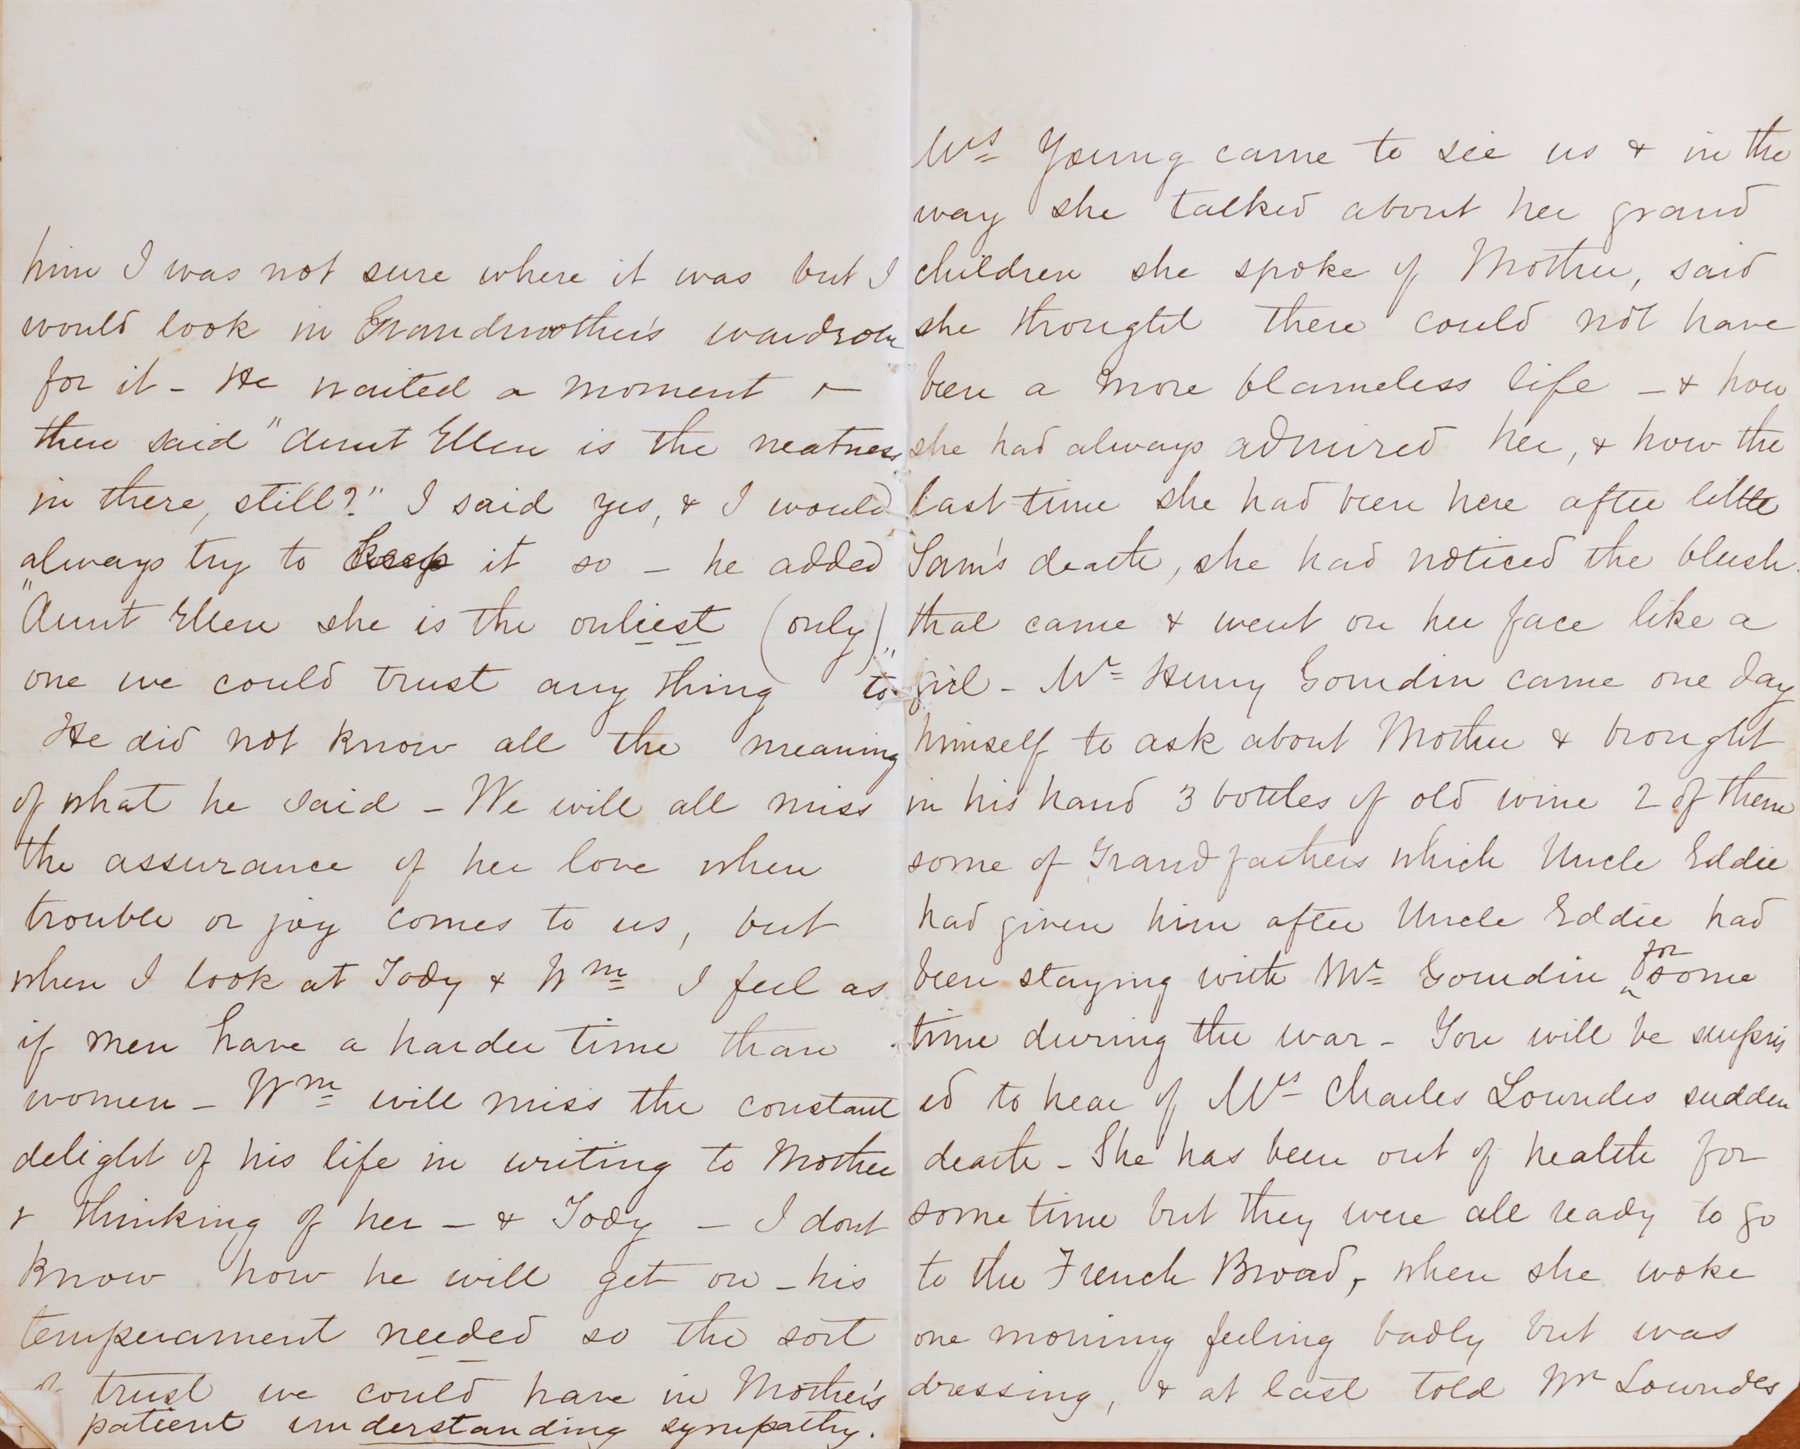 him I was not sure where it was but I
would look in Grandmother's wardrobe
for it - He waited a moment &
then said "Aunt Ellen is the neatness
in there, still?" I said yes, & I would
always try to keep it so - he added
"Aunt Ellen she is the onliest (only)
one we could trust any thing to"
He did not know all the meaning
of what he said - We will all miss
the assurance of her love when
trouble or joy comes to us, but
when I look at Tody & Wm I feel as
if men have a harder time than
women - Wm will miss the constant
delight of his life in writing to Mother
& thinking of her - & Tody - I dont
know how he will get on - his
temperament needed so the sort
of trust we could have in Mother's
patient understanding sympathy.
Mrs Young came to see us & in the
way she talked about her grand
children she spoke of Mother, said
she thought there could not have
been a more blameless life - & how
she had always admired her, & how the
last time she had been here after little
Sam's death, she had noticed the blush
that came & went on her face like a
girl - Mr Henry Gourdin came one day
himself to ask about Mother & brought
in his hand 3 bottles of old wine 2 of them
some of Grandfathers which Uncle Eddie
had given him after Uncle Eddie had
been staying with Mr Gourdin for some
time during the war - You will be surpris
ed to hear of Mrs Charles Lowndes sudden
death - She has been out of health for
some time but they were all ready to go
to the French Broad, when she woke
one morning feeling badly but was
dressing, & at last told Mr Lowndes